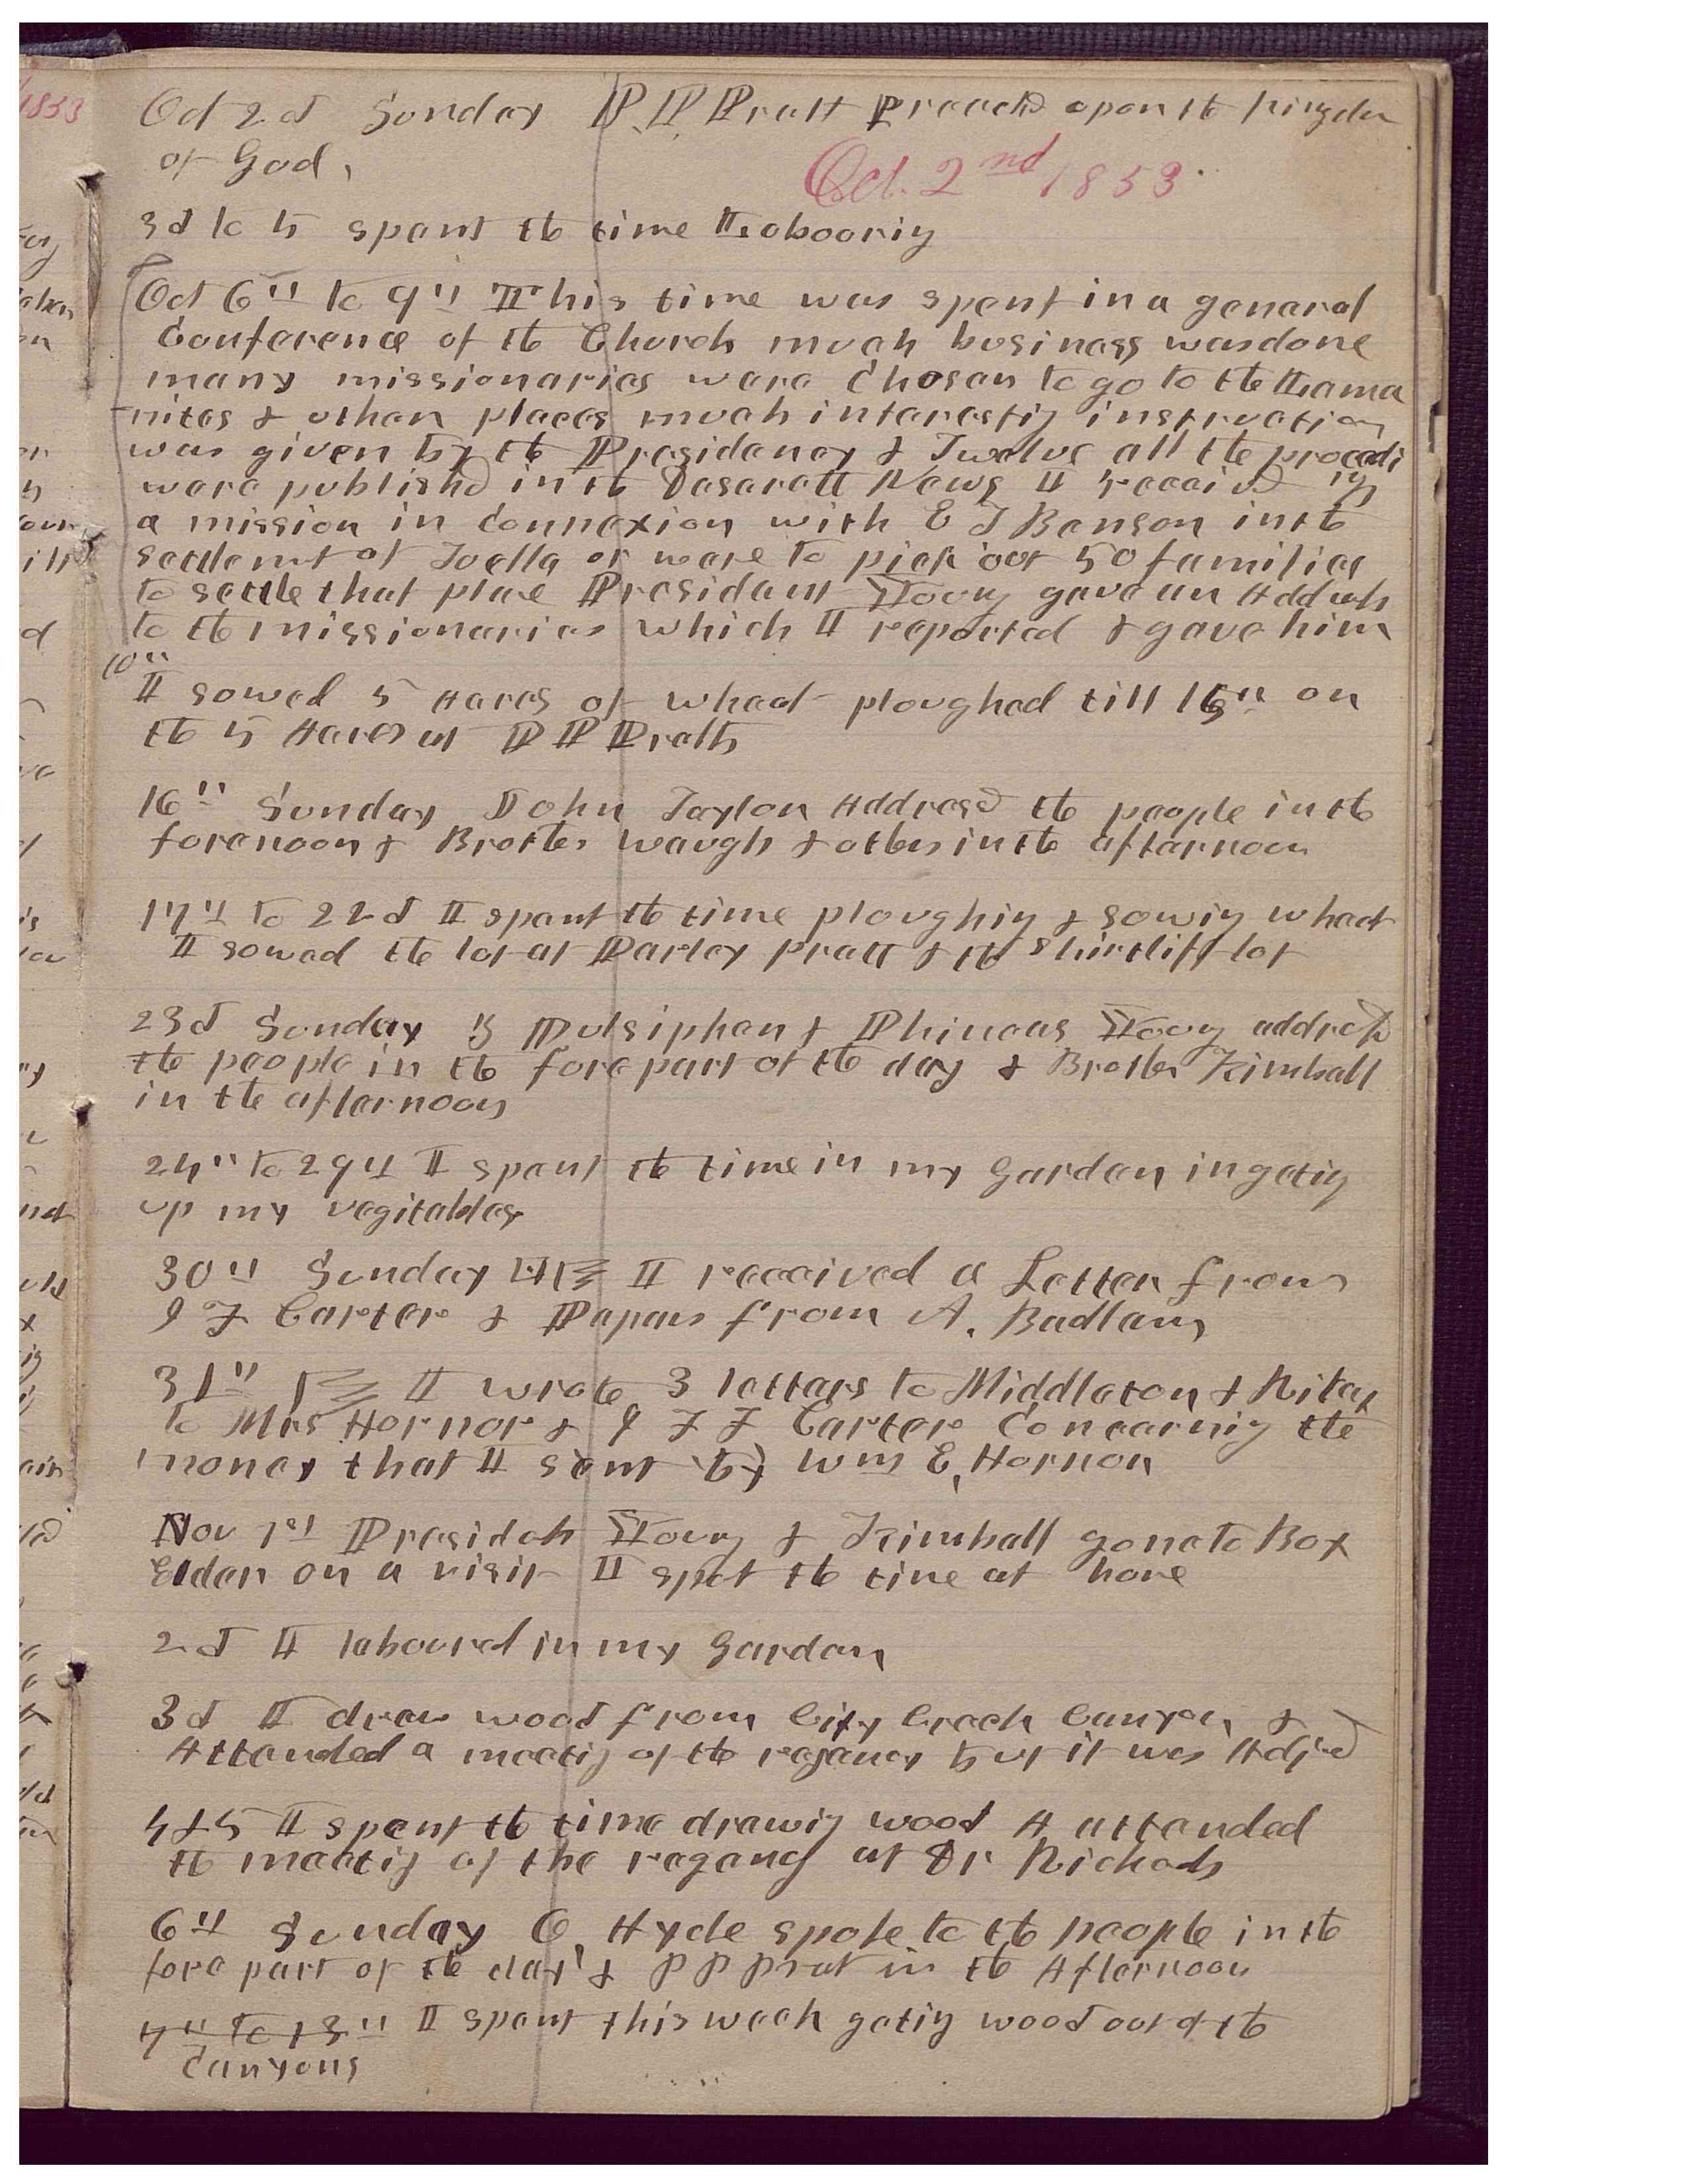 Oct 2d Sunday P. P. Pratt Preachd upon the kingdom
of God,
Oct. 2nd 1853.
3d to 5 spent the time Labooring
Oct 6th to 9th This time was spent in a general
Conference of the Church much business was done
many missionaries ware Chosen to go to the Lama
nites & other places much interesting instruction
was given by the Presidency & Twelve all the proceedi
ware publishd in the Desarett News I receivd ngs
a mission in Connexion with E T Benson in the
settlemt of Toella or ware to pick out 50 families
to settle that place President Young gave an Address
to the missionaries which I reported & gave him
10th
I sowed 5 Acres of wheat ploughed till 15th on
the 5 Acres at P P Pratts
16th Sunday John Taylor Addresd the people in the
forenoon & Brother Waugh & others in the afternoon
17th to 22d I spent the time ploughing & sowing wheat
I sowed the lot at Parley Pratt & the Shirtliff lot
23d Sunday Z Pulsipher & Phineas Young addresd
the people in the forepart of the day & Brother Kimball
in the afternoon
24th to 29th I spent the time in my Garden in geting
up my vegitables
30th Sunday I received a Letter from
I F Carter & Papers from A. Badlam
31st I wrote 3 letters to Middleton & Riley
to Mrs Hornor & I F F Carter Concerning the
money that I sent by Wm E, Hornor
Nov 1st Presidets Young & Kimball gone to Box
Elder on a visit I spet the time at home
2d I laboured in my Garden
3d I drew wood from City Creek Canyon &
Attended a meeting of the regency but it was Adjd
4 & 5 I spent the time drawing wood & attended
the meeting of the regency at Dr Richards
6th Sunday O, Hyde spoke to the people in the
fore part of the day & P P Prat in the Afternoon
7th to 13th I spent this week geting wood out of the
Canyons